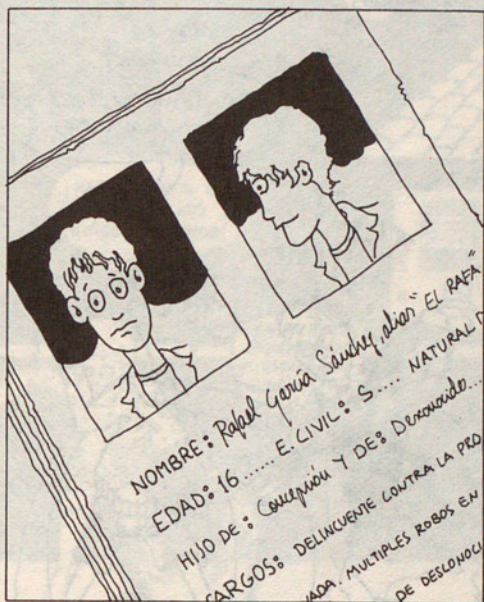 NOMBRE: Rafael García Sánchez, alias "EL RAFA"
EDAD: 16 ...... E. CIVIL: S.... NATURAL D
HIJO DE: Concepción Y DE: Desconocido...
CARGOS: DELINCUENTE CONTRA LA PRO
VADA. MULTIPLES ROBOS EN
DE DESCONOCI